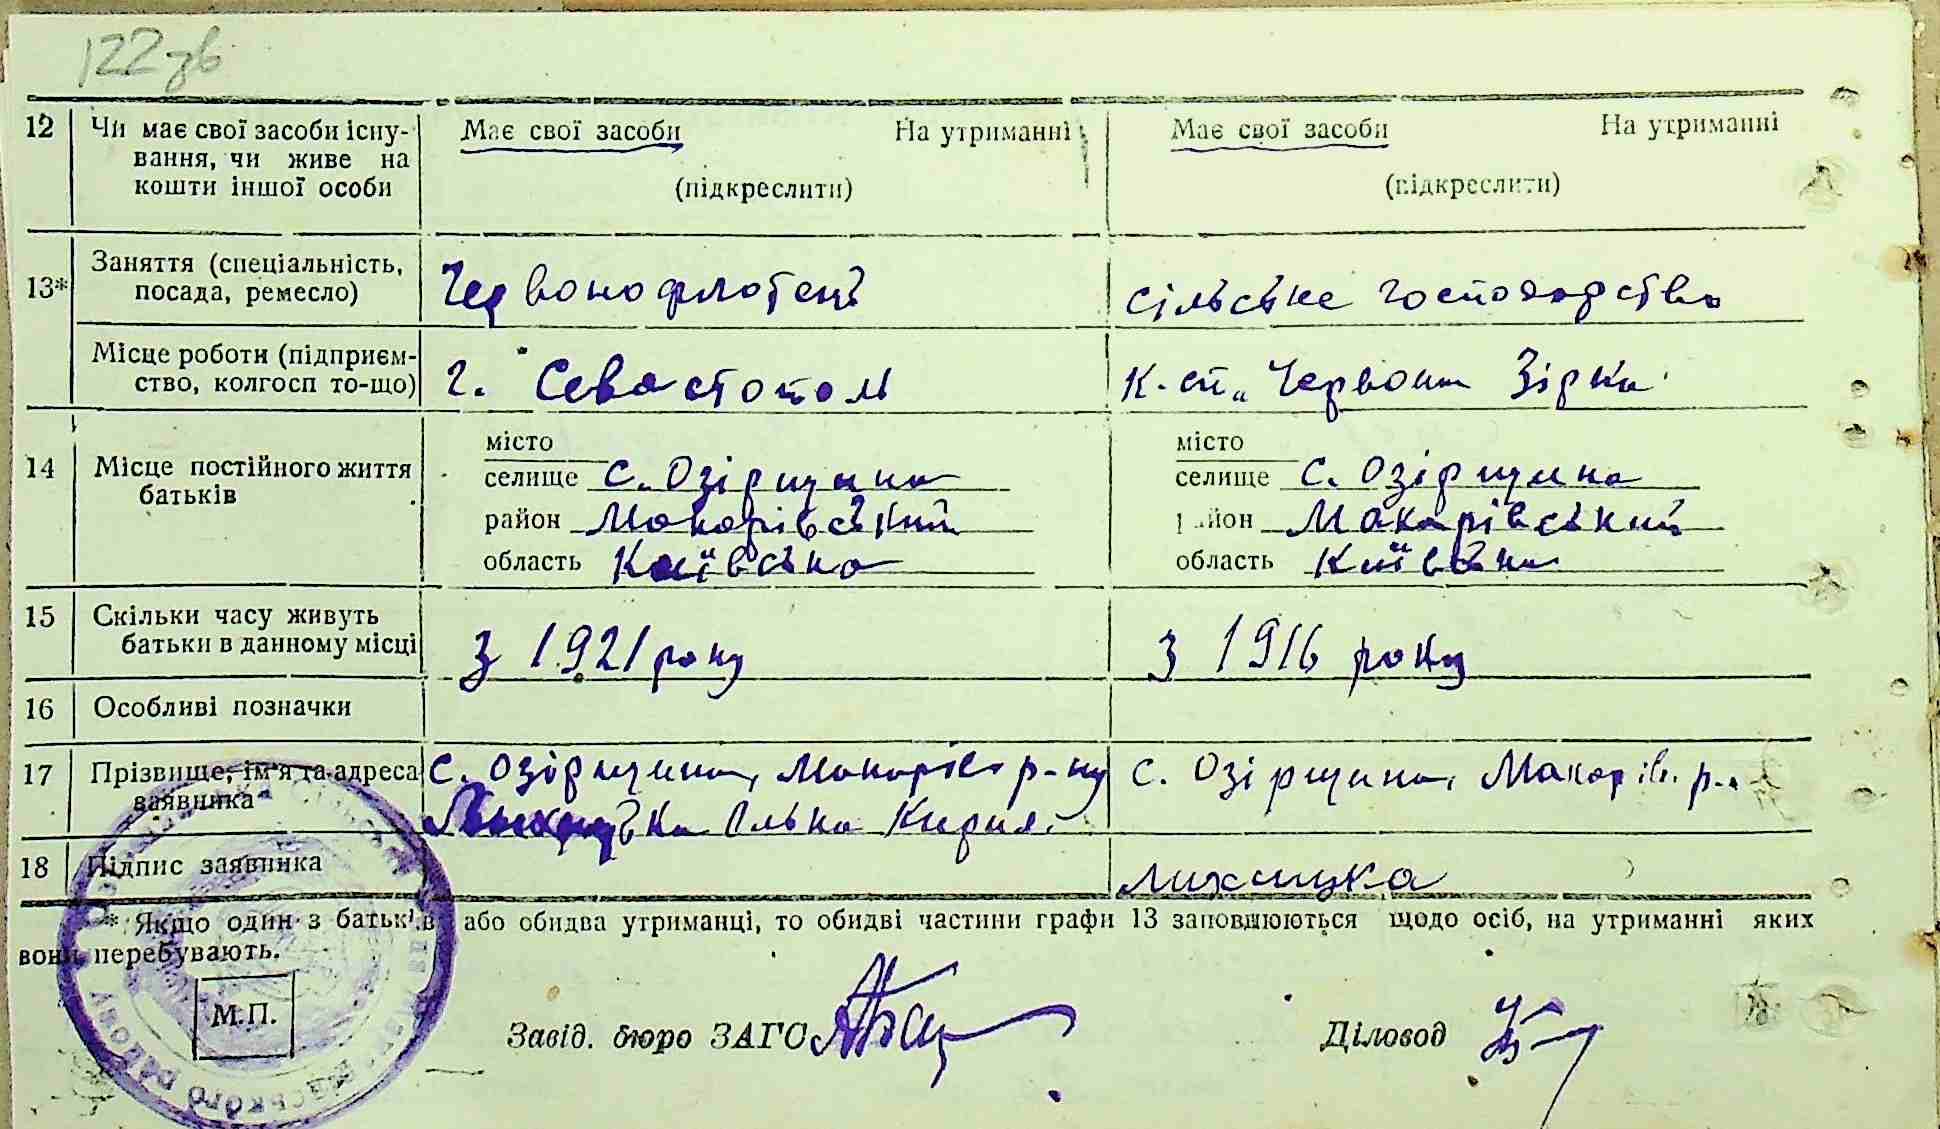 122 зв
12 Чи має свої засоби існу- Має свої засоби На утриманні Має свої засоби На утриманні
вання, чи живе на
кошти іншої особи (підкреслити) (підкреслити)
13* Заняття (спеціальність, посада, ремесло) Червонофлотець сільське господарство
Місце роботи (підприєм-
ство, колгосп то-що) г. Севастополь к-сп „Червона Зірка"
14 Місце постійного життя
батьків
місто місто
селище с. Озірщина селище с. Озірщина
район Макарівський район Макарівський
область Київська область Київська
15 Скільки часу живуть
батьки в данному місці з 1921 року з 1916 року
16 Особливі позначки
17 Прізвище, ім'я та адреса с. Озірщина, Макарів р-ну с. Озірщина, Макарів. р.
заявника Ольна Кирил.
18 Підпис заявника Лихицка
* Якщо один з батьків або обидва утриманці, то обидві частини графи 13 заповнюються щодо осіб, на утриманні яких
вони перебувають.
М.П.
Завід. бюро ЗАГС Діловод